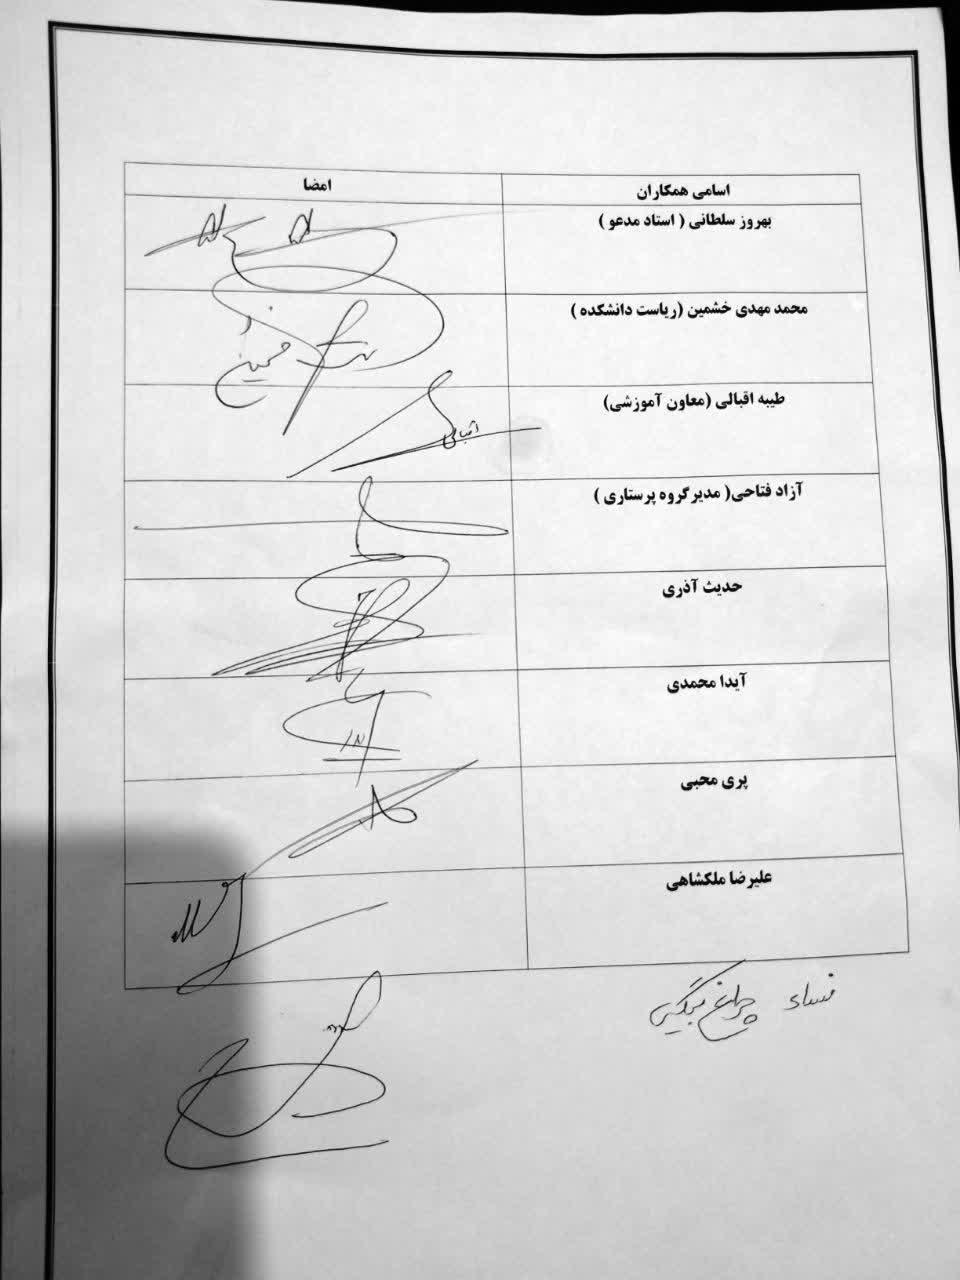 اسامی همکاران امضا
بهروز سلطانی ( استاد مدعو )
محمد مهدی خشمین (ریاست دانشکده )
خشمین
طیبه اقبالی (معاون آموزشی)
اقبالی
آزاد فتاحی( مدیرگروه پرستاری )
حدیث آذری
آیدا محمدی
پری محبی
علیرضا ملکشاهی
چراغ بیگی